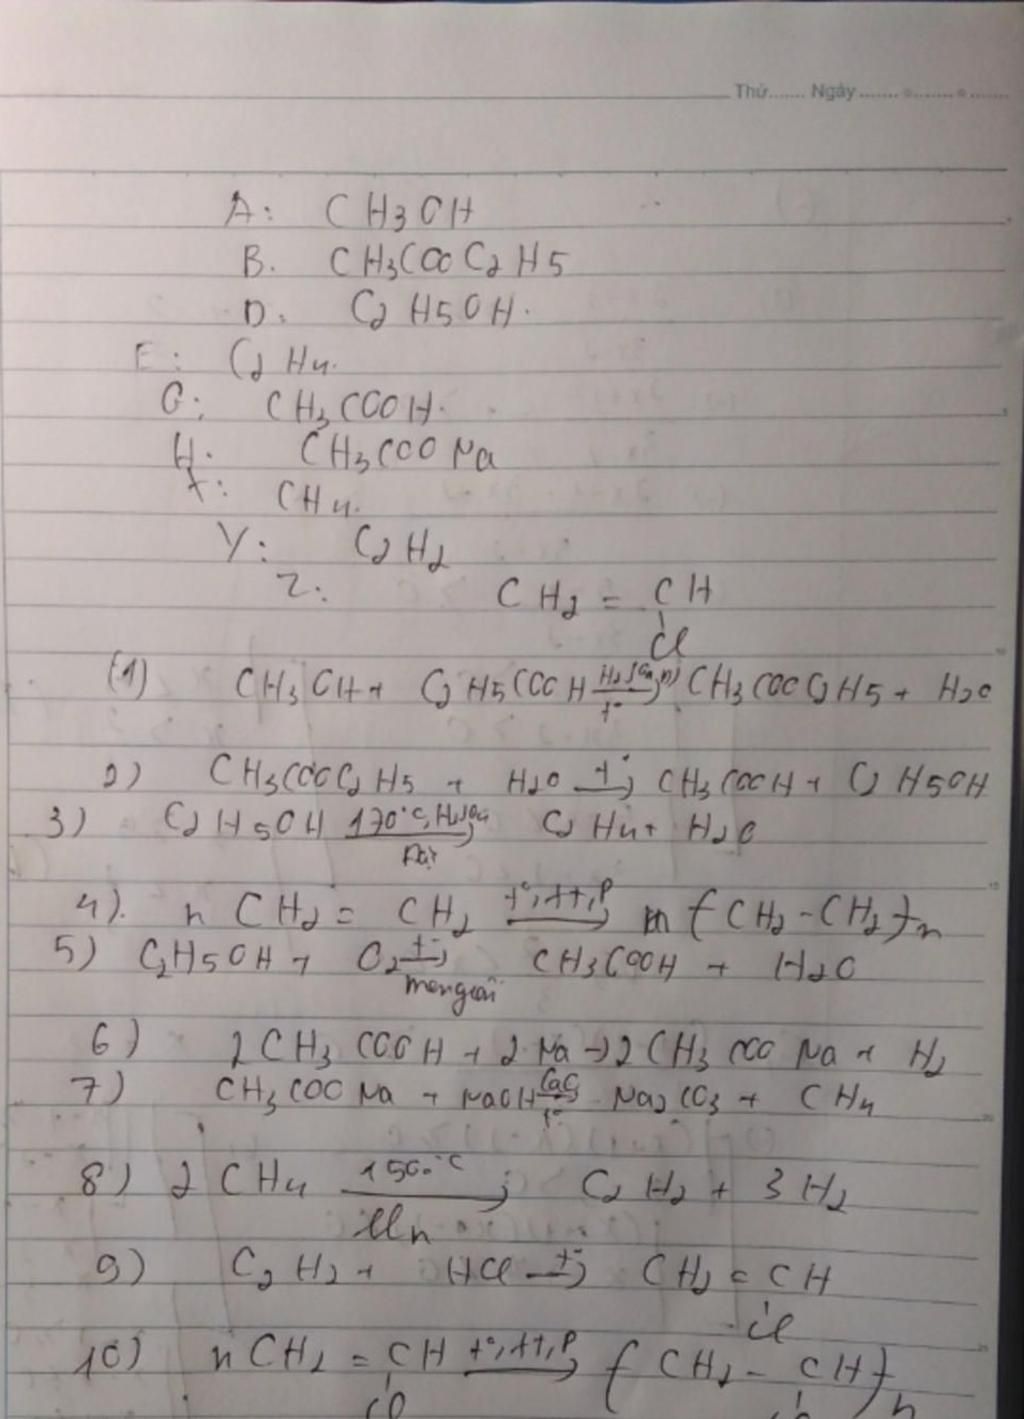 Thứ....... Ngày.......
A: CH3OH
B. CH3COOC2H5
D. C2H5OH.
E: C2H4.
G: CH3COOH.
H. CH3COONa
X: CH4.
Y: C2H2
Z: CH2 = CH
Cl
(1) CH3OH + C2H5COOH t° CH3COOC2H5 + H2O
2) CH3COOC2H5 + H2O t° CH3COOH + C2H5OH
3) C2H5OH 170°C, H2SO4 đặc C2H4 + H2O
4). n CH2 = CH2 t°, xt, P (CH2 - CH2)n
5) C2H5OH + O2 t° men giấm CH3COOH + H2O
6) 2CH3COOH + 2Na → 2CH3COONa + H2
7) CH3COONa + NaOH CaO t° Na2CO3 + CH4
8) 2CH4 1500°C lln C2H2 + 3H2
9) C2H2 + HCl t° CH2 = CH
Cl
10) nCH2 = CH t°, xt, P (CH2 - CH)n